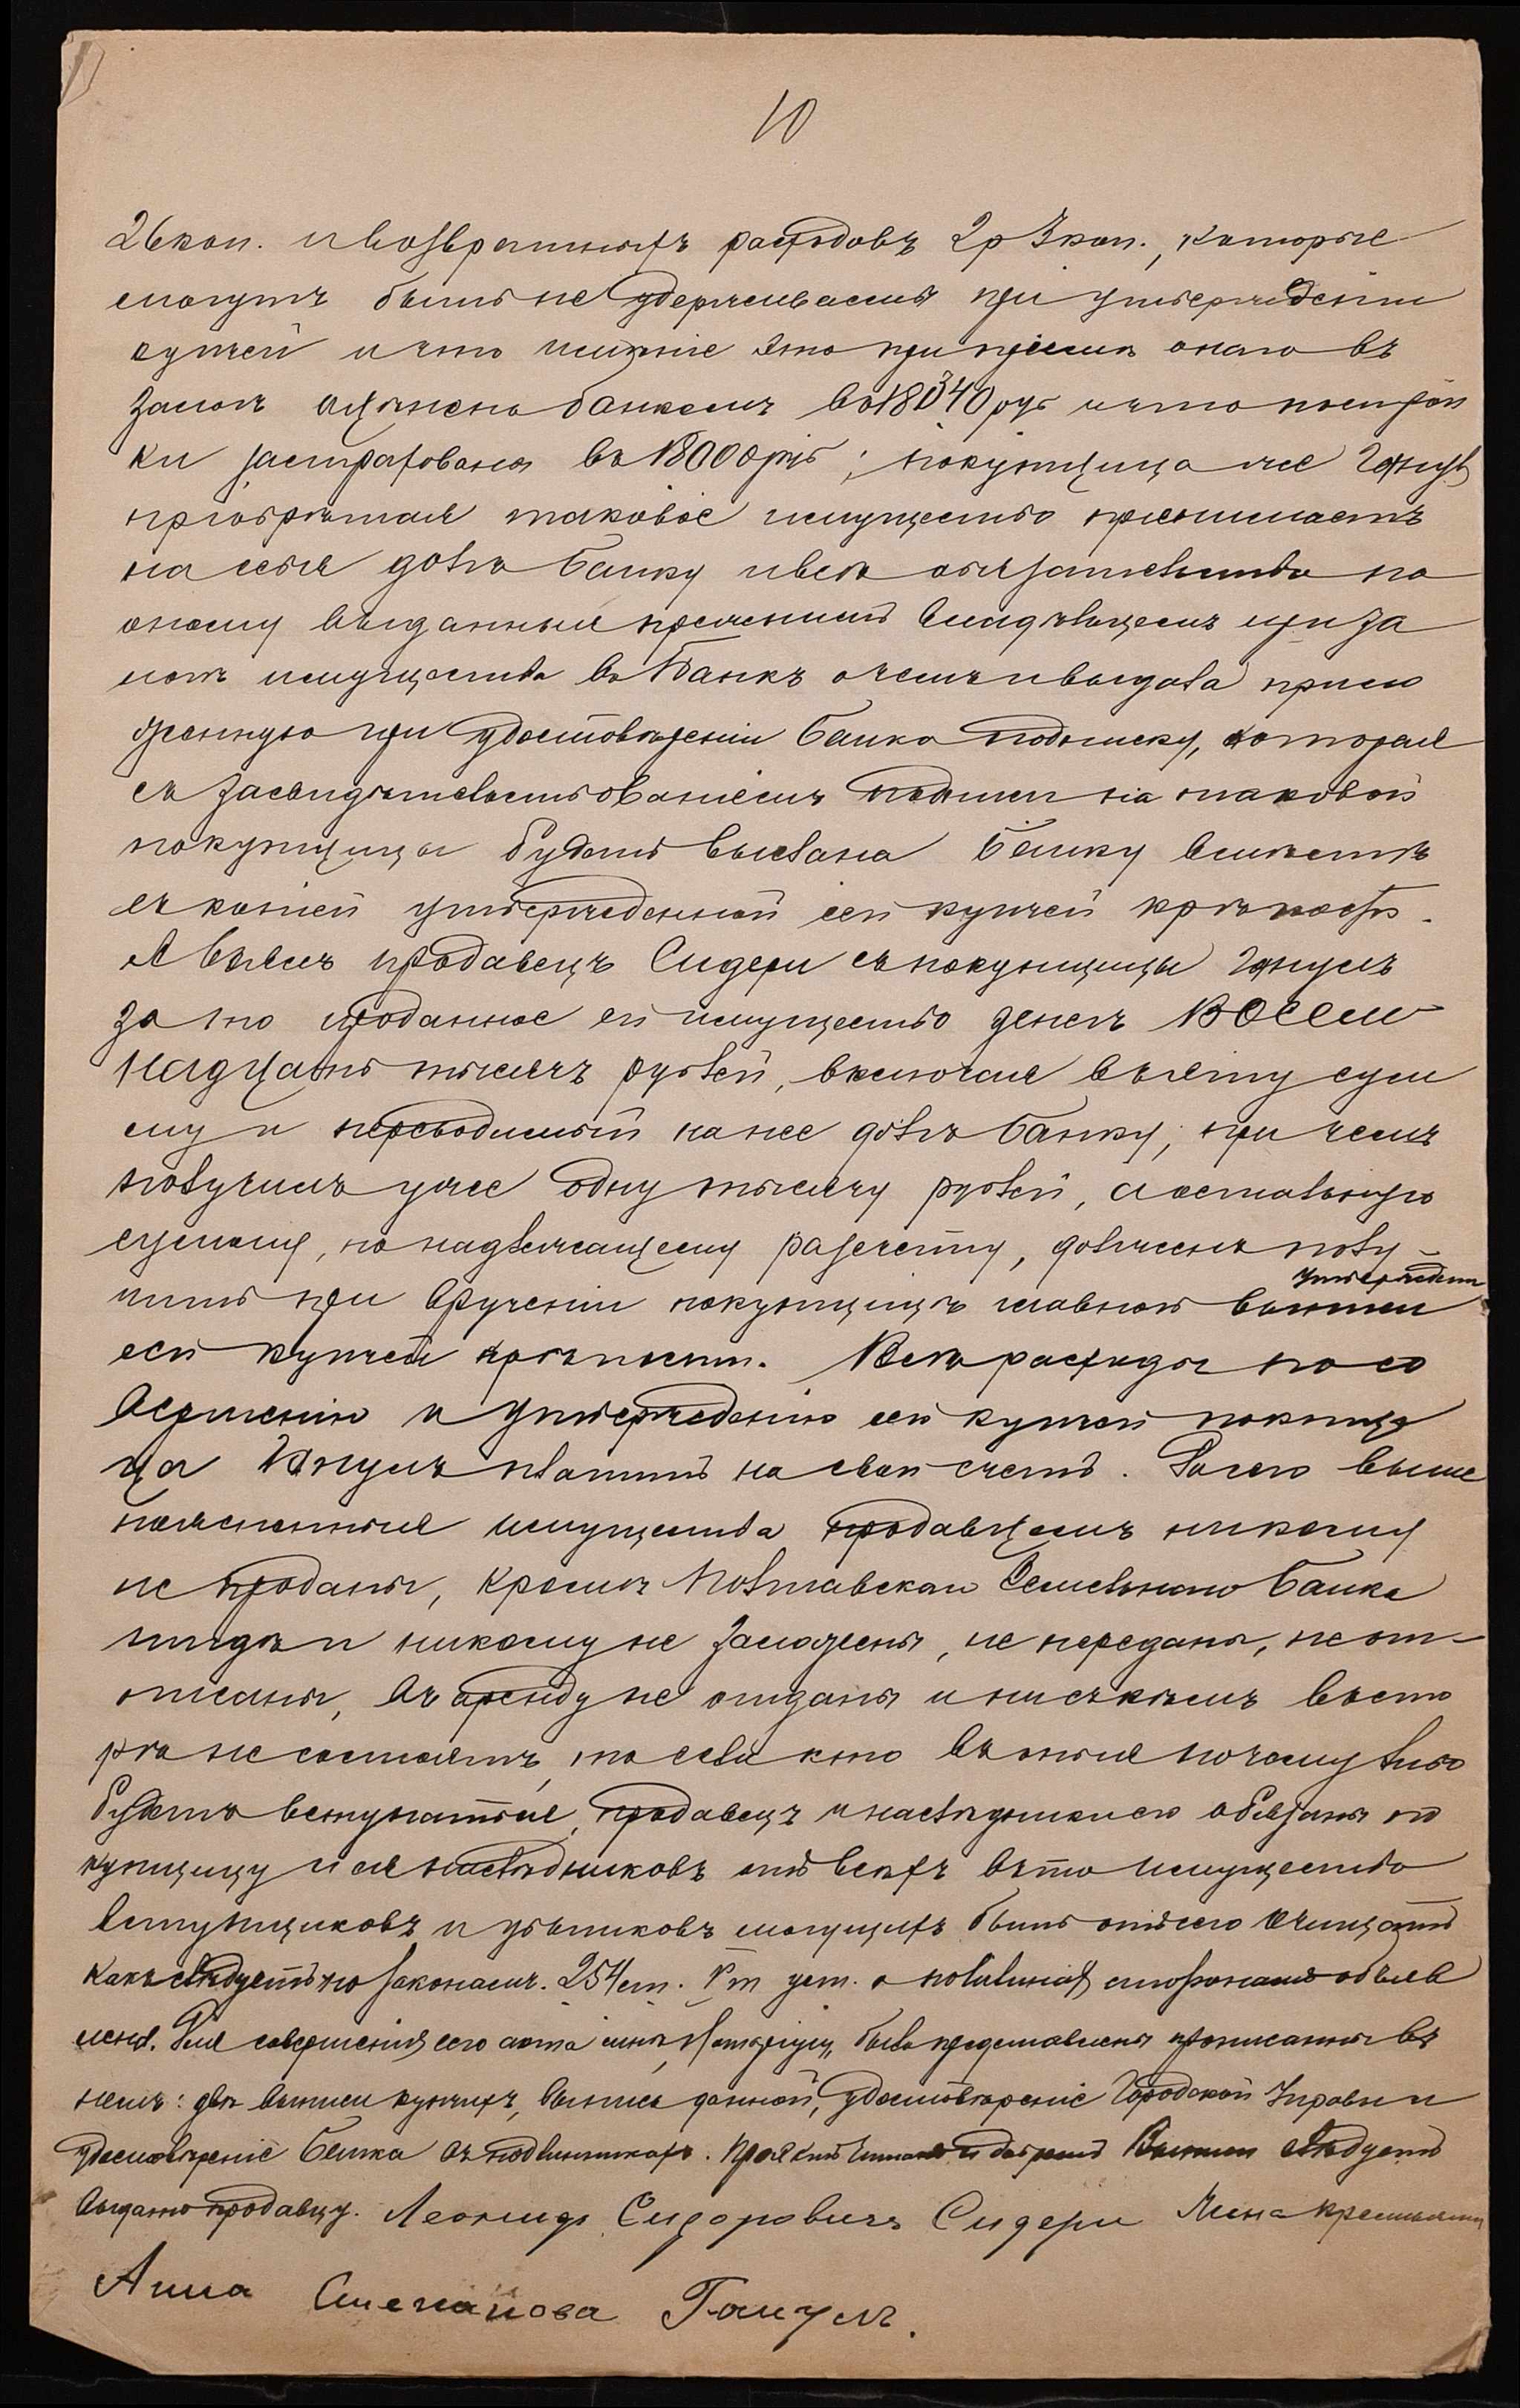 10
26 коп. и возвратныхъ расходовъ 2 р 3 коп., которые
могутъ быть не удерживаемы при утвержденіи
купчей и что имѣніе это при пріемѣ онаго въ
залогъ оцѣнено банкомъ въ 18340 руб и что построй
ки застрахованы въ 18000 руб; покупщица же
пріобрѣтая таковое имущество принимаетъ
на себя долгъ банку и всѣ обязательства по
оному выданныя прежнимъ владѣльцемъ при за
логѣ имущества въ Банкѣ о чемъ и выдала прило
женную при удостовѣреніи банка подписку, которая
съ засвидѣтельствованіемъ подписи на таковой
покупщицы будетъ выслана банку вмѣстѣ
съ копіей утвержденной сей купчей крѣпости.
А взялъ продавецъ Сидери съ покупщицы Ганулъ
за это проданное ей имущество денегъ восем
надцать тысячъ рублей, включая въ эту сум
му и переводимый на нее долгъ банку, при чемъ
получилъ уже одну тысячу рублей, а остальную
сумму, по надлежащему разсчету, долженъ полу-
чить при врученіи покупщицѣ главной выписи утвержден
сей купчей крѣпости. Всѣ расходы по со
вершенію и утвержденію сей купчей покупщи
ца Ганулъ платитъ на свой счетъ. До сего выше
поясненныя имущества продавцемъ никому
не проданы, кромѣ Полтавскаго Земельнаго банка
нигдѣ и никому не заложены, не переданы, не от-
писаны, въ аренду не отданы и ни съ кѣмъ въ спо
рѣ не состоятъ, то если кто въ оныя почему либо
будетъ вступаться, продавецъ и наслѣдники его обязаны по
купщицу и ея наслѣдниковъ отъ всѣхъ въ то имущество
вступщиковъ и убытковъ могущихъ быть отъ сего очищать
какъ слѣдуетъ по законамъ. 254 ст. V т уст. о пошлинахъ сторонамъ объяв
лена. Для совершенія сего акта мнѣ, Нотаріусу, были представлены прописанныя въ
немъ: двѣ выписи купчихъ, выпись данной, удостовѣреніе Городской Управы и
удостовѣреніе банка въ подлинникахъ. Проектъ читанъ и одобренъ Выпись слѣдуетъ
выдать продавцу. Леонидъ Сидоровичъ Сидери Жена крестьянин
Анна Степанова Ганулъ.